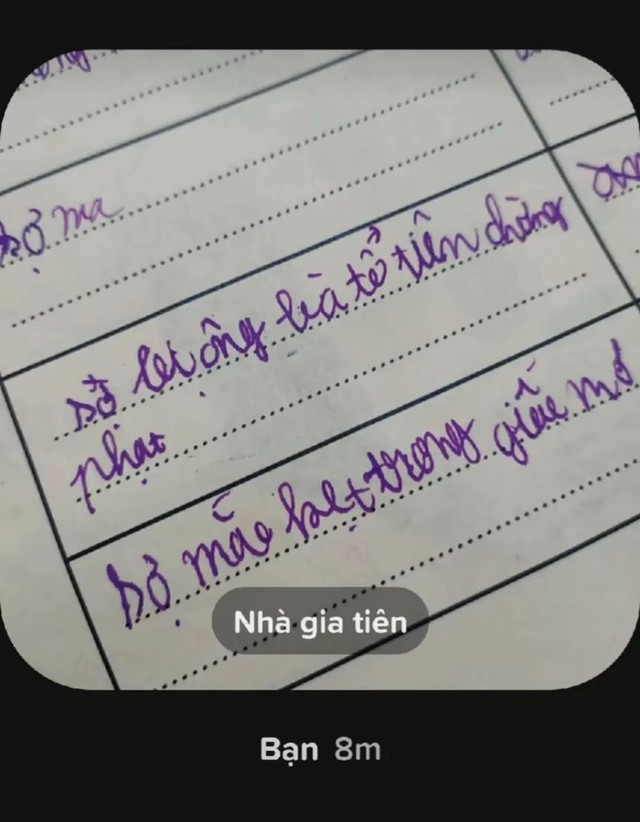 sợ ma
sợ bị ông bà tổ tiên chừng
phạt
sợ mắc kẹt trong giấc mơ
Nhà gia tiên
Bạn 8m